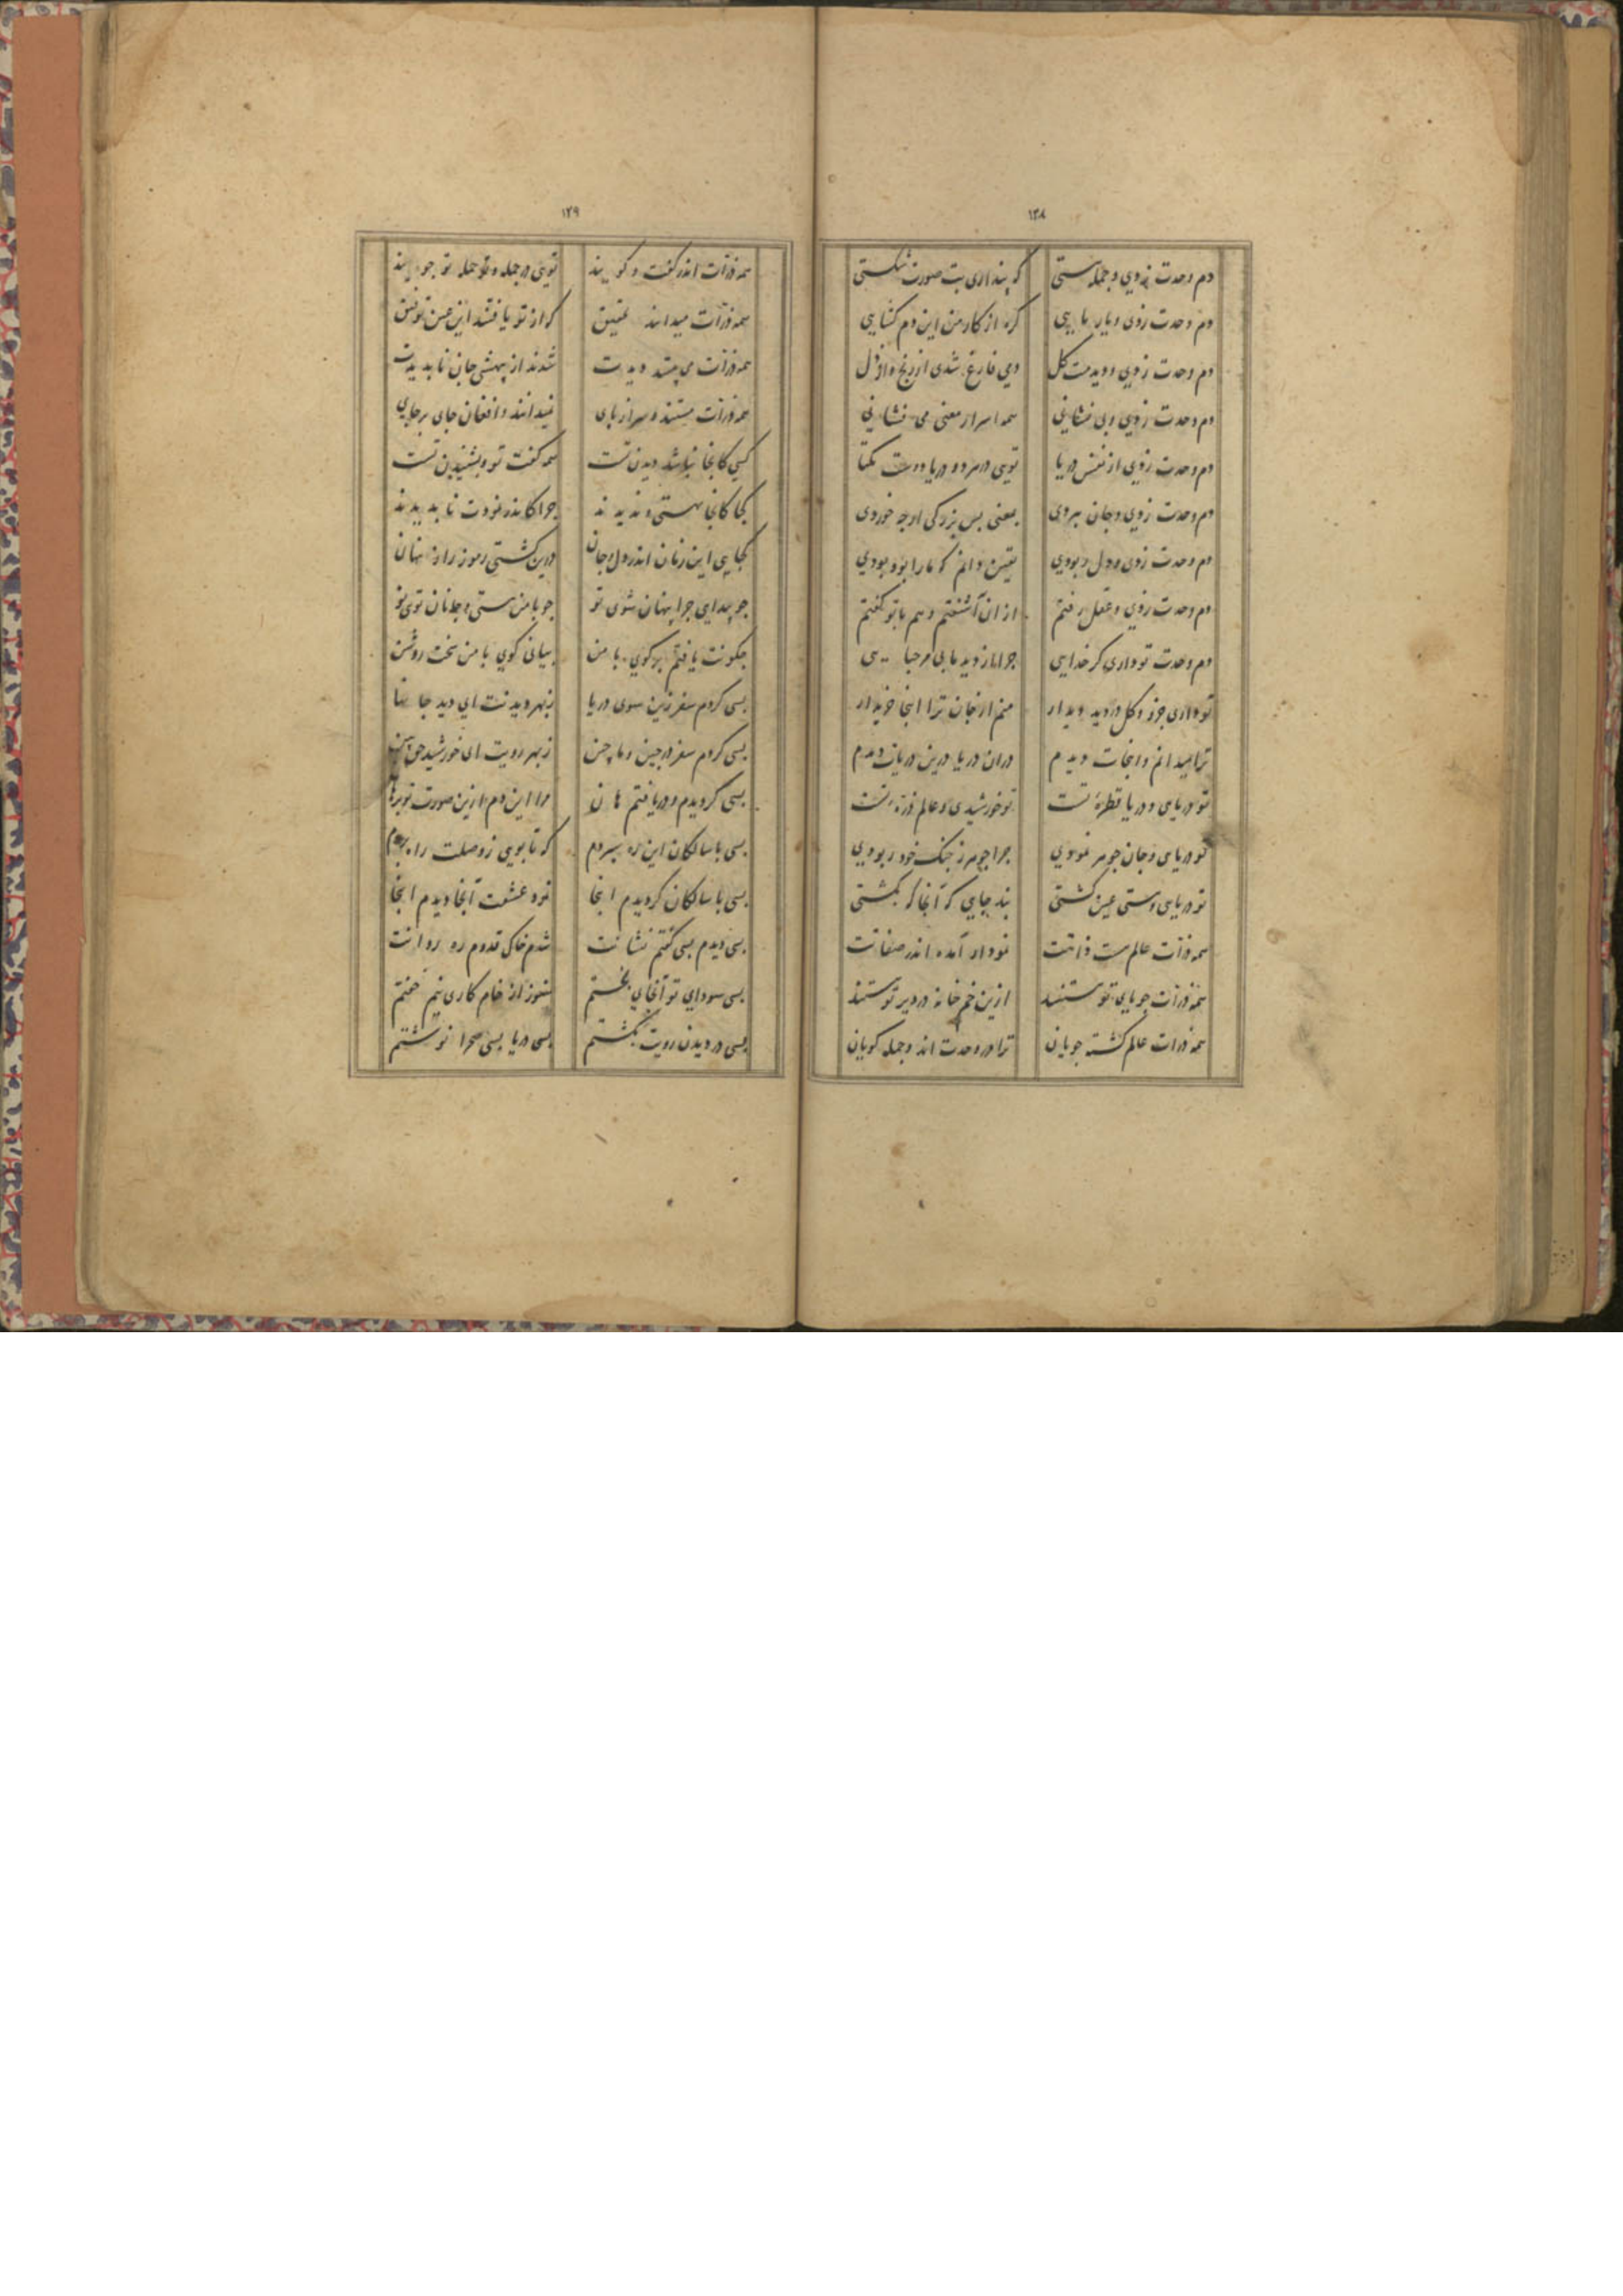 ۱۲۸
دم وحدت زدی و جمله هستی که پنداری بت صورت شکستی
دم وحدت زدی و یار مایی گره از کار من این دم گشایی
دم وحدت زدی و دیدمت کل دمی فارغ شدی از رنج و از ذل
دم وحدت زدی و بی نشانی همه اسرار معنی می فشانی
دم وحدت زدی از نفس دریا تویی در هر دو دریا دوست یکتا
دم وحدت زدی و جان ببردی بمعنی بس بزرگی ارچه خوردی
دم وحدت زدی و دل ربودی یقین دانم که ما را بوده بودی
دم وحدت زدی و عقل رفتم از ان آشفتم و هم با تو گفتم
دم وحدت تو داری کر خدایی چرا ما زدید مایی مرحبایی
تو داری جزو و کل در دید دیدار منم از جان ترا اینجا خریدار
ترا میدانم و انجات دیدم در ان دریا درین دریات دیدم
تو دریایی و دریا قطرهٔ تست تو خورشیدی و عالم ذرهٔ تست
تو دریایی و جان جوهر نمودی چرا جوهر ز چنک خود ربودی
تو دریایی و هستی عین کشتی بند جایی که آنجا که بکشتی
همه ذرات عالم هست ذاتت نمودار آمده اندر صفاتت
همه ذرات جویای تو هستند ازین خم خانه در دیر تو مستند
همه ذرات عالم کشته جویان ترا در وحدت اند و جمله کویان
۱۲۹
همه ذرات اندر کفت و کویند تویی در جمله و جمله تو جویند
همه ذرات میدانند تحقیق که از تو یافتند این عین توفیق
همه ذرات می جستند دیدت شدند از بهشی جان ناپدیدت
همه ذرات مستند و سر از پای نمیدانند و افغان جای بر جای
کسی کانجا نباشد دیدن تست همه کفت تو و بشنیدن تست
کجا کانجا بهستی دیدند چرا کاندر نمودت ناپدیدند
کجایی این زمان اندر دل و جان درین کشتی رموز راز پنهان
چو پیدایی چرا پنهان شوی تو چو با من هستی و جانان توی تو
چکونت یافتم بر کوی با من بیانی کوی با من سخت روشن
بسی کردم سفر زین سوی دریا ز بهر دیدنت ای دید جانها
بسی کردم سفر در چین و ماچین ز بهر رویت ای خورشید حق بین
بسی کردیدم و دریافتم هان مرا این دم ازین صورت تو برهان
بسی با سالکان این ره سپردم که تا بویی ز وصلت راه بردم
بسی با سالکان کردیدم اینجا نمود عشقت آنجا دیدم اینجا
بسی دیدم بسی کفتم نشانت شدم خاک قدوم ره روانت
بسی سودای تو آنجای پختم هنوز از خام کاری نیم پختم
بسی در دیدن رویت بکشتم بسی دریا بسی صحرا نوشتم